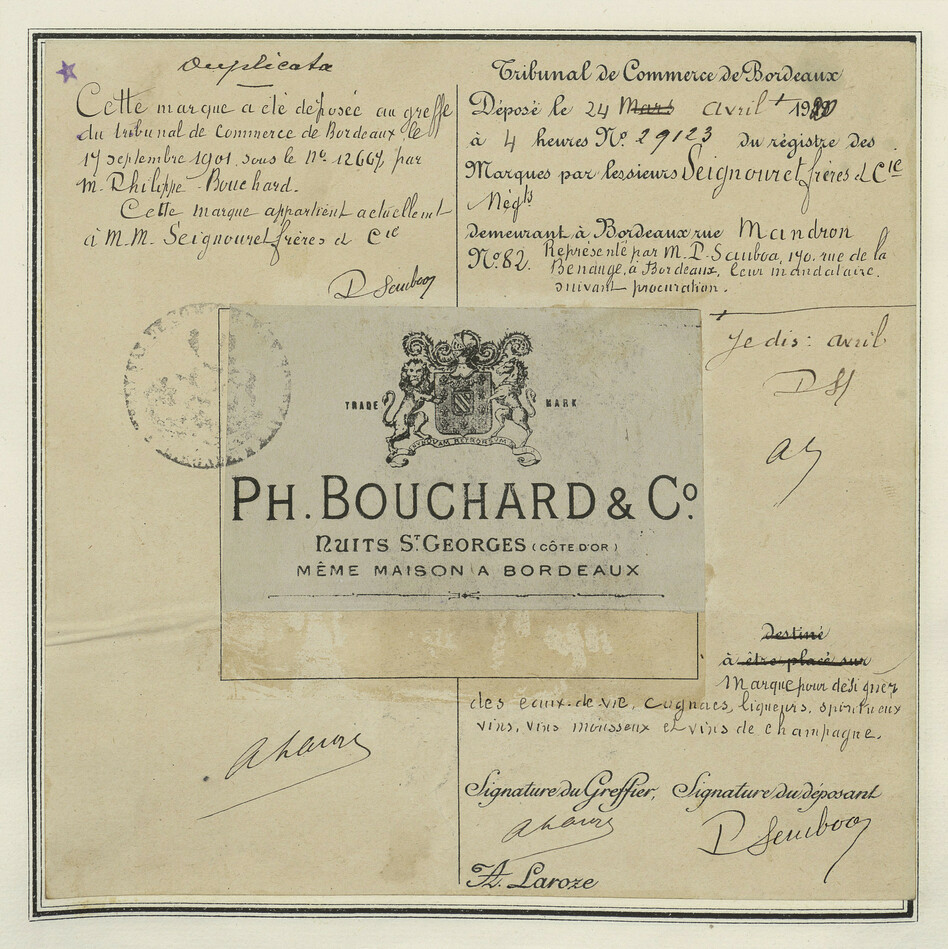 Duplicata
Cette marque a été déposée au greffe
du tribunal de Commerce de Bordeaux le
17 septembre 1901 sous le No 12667 par
M. Philippe Bouchard.
Cette marque appartient actuellement
à M.M. Seignouret frères & Cie
P. Sauboa
Tribunal de Commerce de Bordeaux
Déposé le 24 Mars avril 19
à 4 heures No 29123 du régistre des
Marques par lessieurs Seignouret frères & Cie
Négts
demeurant à Bordeaux rue Mandron
No 82. Représenté par M. P. Sauboa, 170, rue de la
Benauge, à Bordeaux, leur mandataire,
suivant procuration.
Je dis : avril
TRADE MARK
PH. BOUCHARD & Co.
NUITS ST GEORGES (CÔTE D'OR)
MÊME MAISON A BORDEAUX
destiné
à être placé sur
Marque pour désigner
des eaux-de-vie, cognacs, liqueurs, spiritueux
vins, vins mousseux et vins de champagne.
Signature du Greffier, Signature du déposant
P. Sauboa
A. Laroze